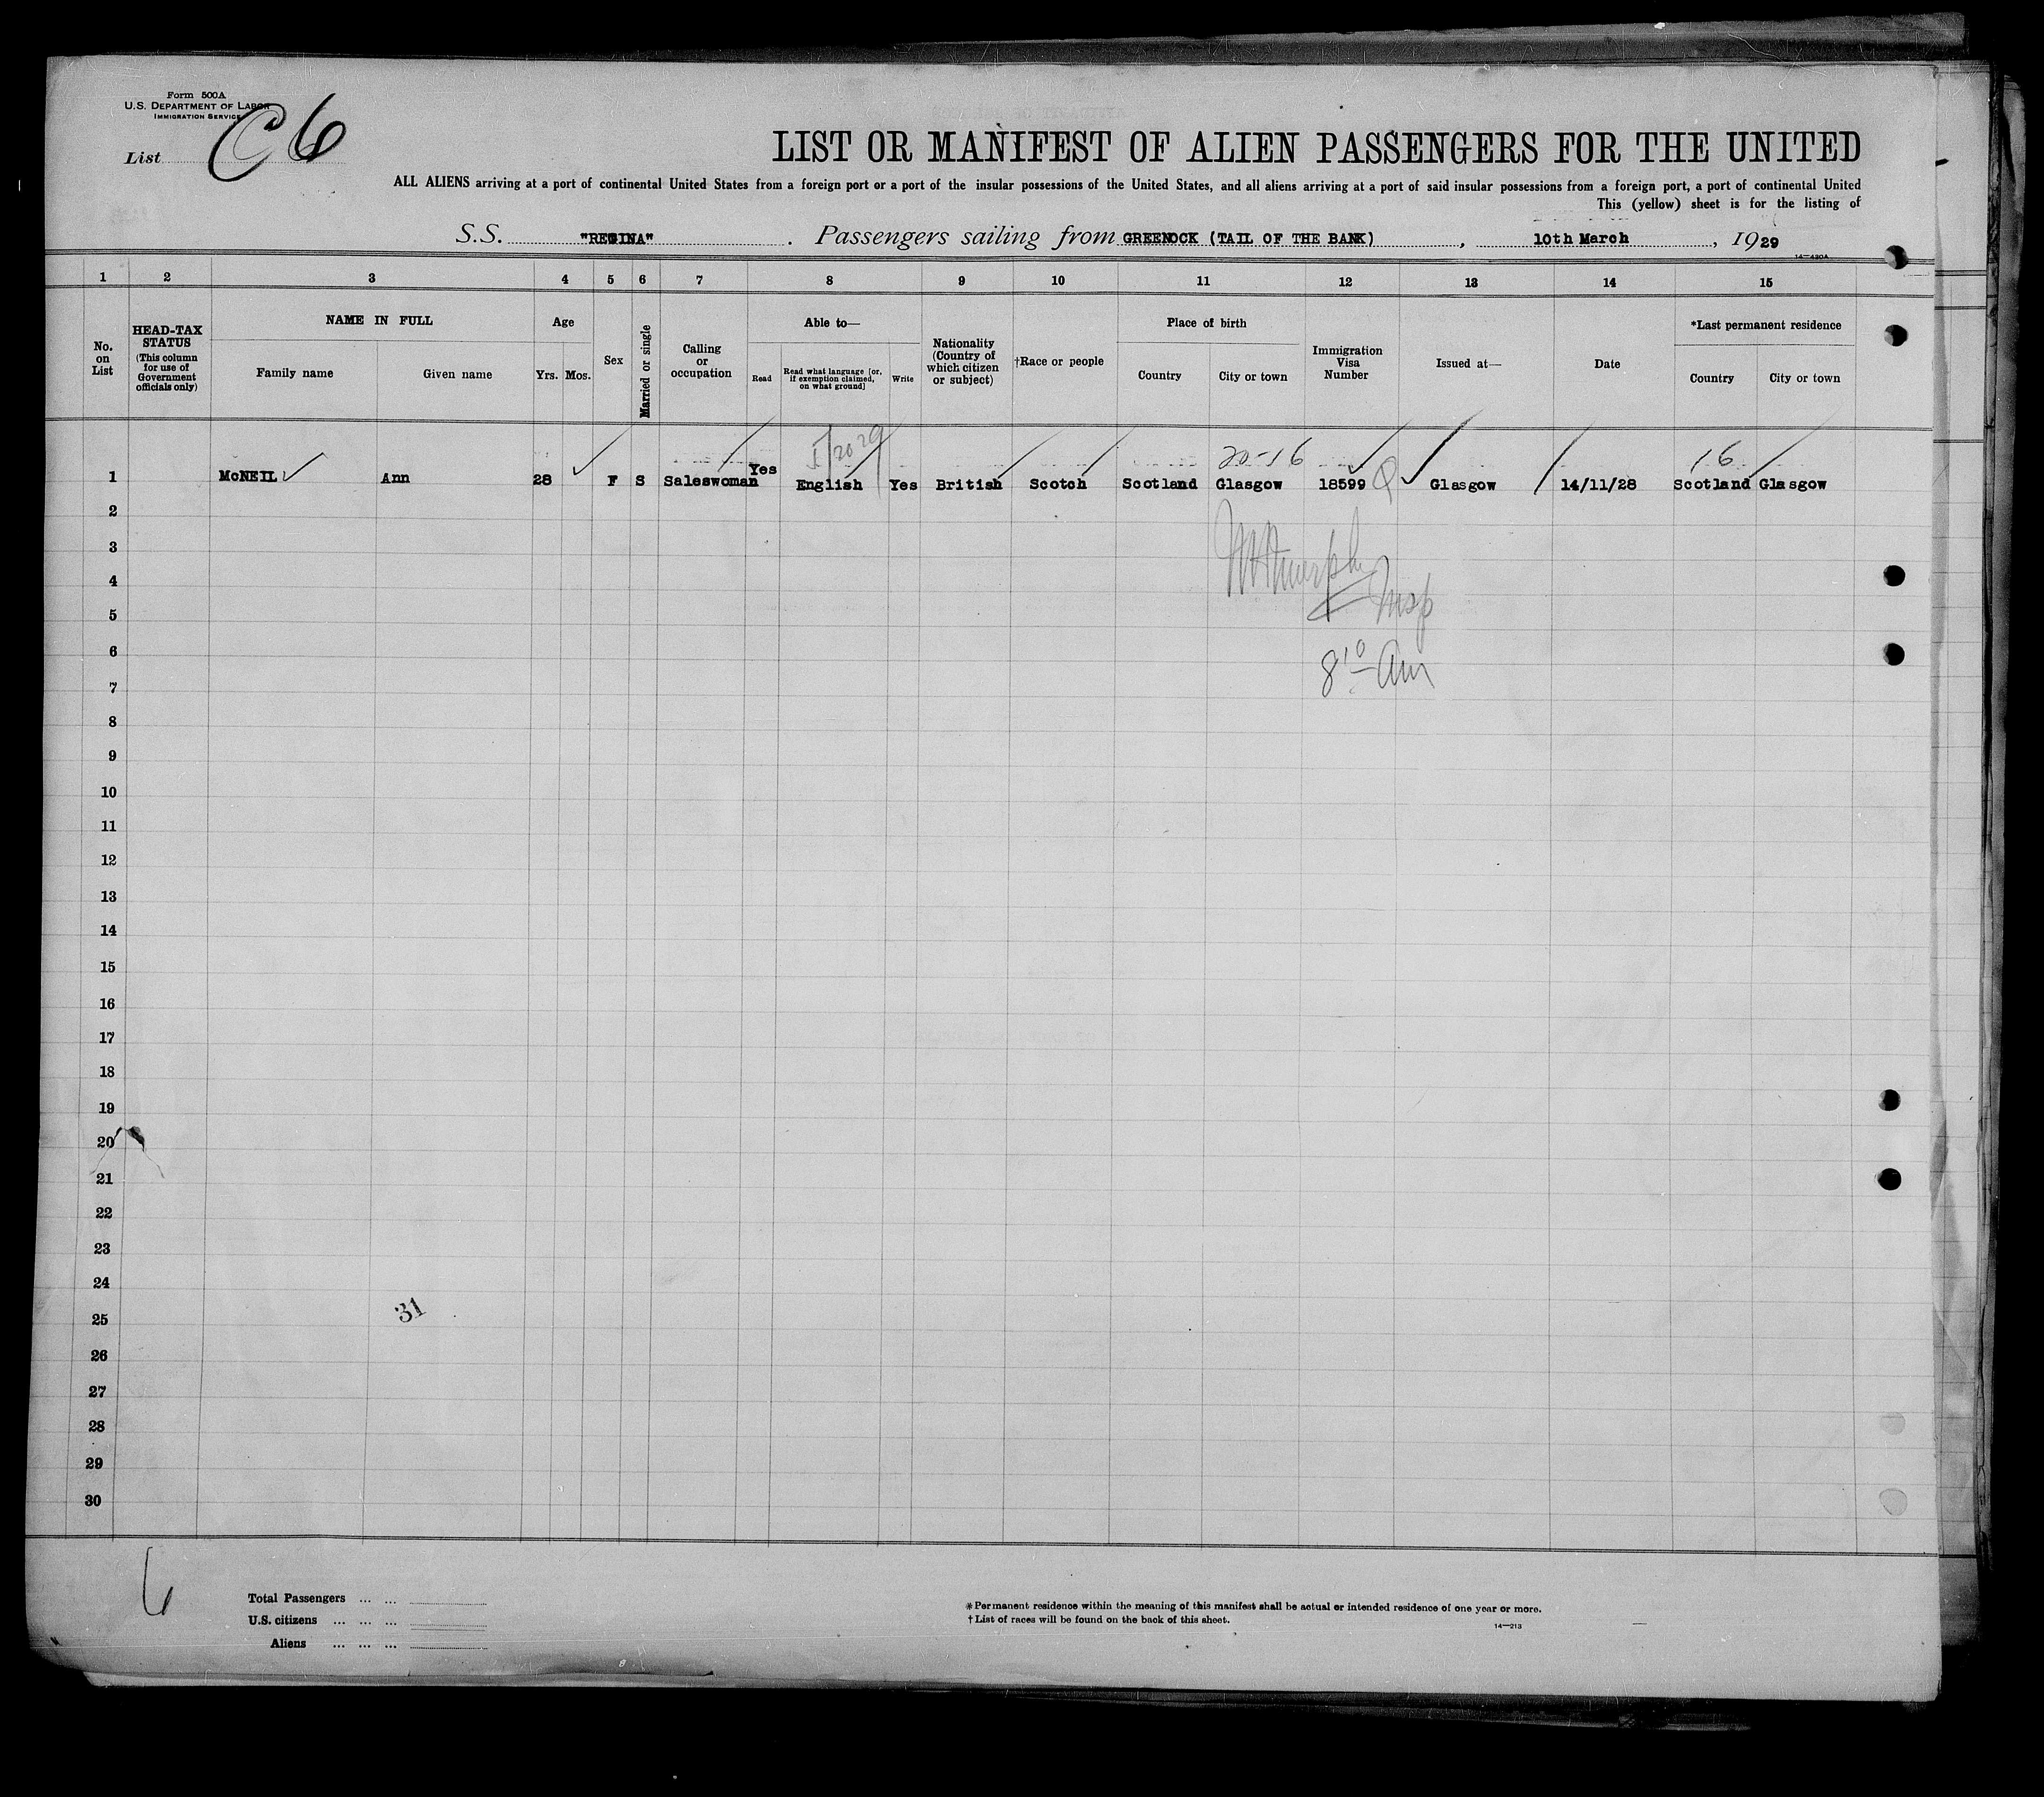 Form 500A
U.S. DEPARTMENT OF LABOR
IMMIGRATION SERVICE
List C6
LIST OR MANIFEST OF ALIEN PASSENGERS FOR THE UNITED
ALL ALIENS arriving at a port of continental United States from a foreign port or a port of the insular possessions of the United States, and all aliens arriving at a port of said insular possessions from a foreign port, a port of continental United
This (yellow) sheet is for the listing of
S.S. "REGINA". Passengers sailing from GREENOCK (TAIL OF THE BANK), 10th March, 1929
14—430A
1 2 3 4 5 6 7 8 9 10 11 12 13 14 15
No. on List
HEAD-TAX STATUS (This column for use of Government officials only)
NAME IN FULL
Family name Given name
Age
Yrs. Mos.
Sex
Married or single
Calling or occupation
Able to—
Read
Read what language [or, if exemption claimed, on what ground]
Write
Nationality (Country of which citizen or subject)
†Race or people
Place of birth
Country City or town
Immigration Visa Number
Issued at—
Date
*Last permanent residence
Country City or town
20-16 16
1 McNEIL Ann 28 F S Saleswoman Yes English Yes British Scotch Scotland Glasgow 18599 Glasgow 14/11/28 Scotland Glasgow
2
3
4
5
6
7
8
9
10
11
12
13
14
15
16
17
18
19
20
21
22
23
24
25
26
27
28
29
30
Insp
8 10 Am
31
6
Total Passengers ... ...
U.S. citizens ... ... ...
Aliens ... ... ...
*Permanent residence within the meaning of this manifest shall be actual or intended residence of one year or more.
†List of races will be found on the back of this sheet.
14—213